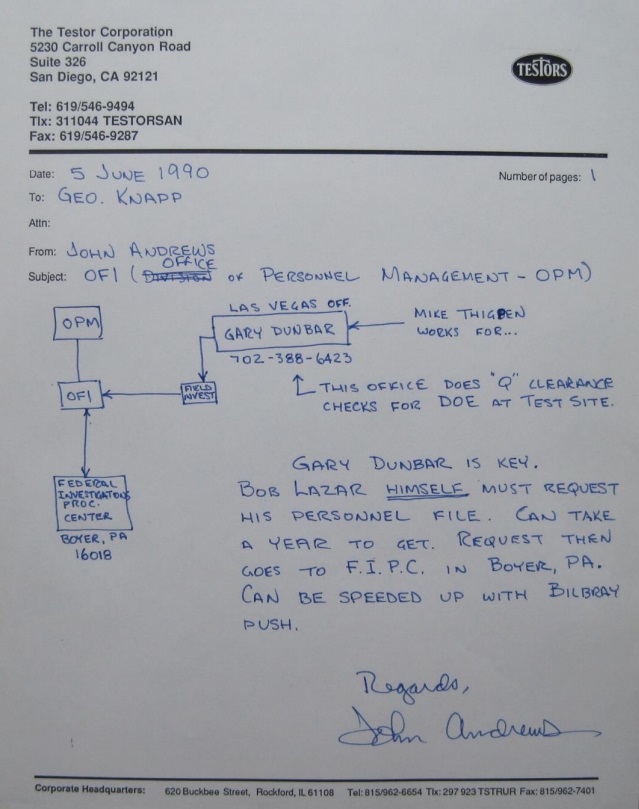 The Testor Corporation
5230 Carroll Canyon Road
Suite 326
San Diego, CA 92121
TESTORS
Tel: 619/546-9494
Tlx: 311044 TESTORSAN
Fax: 619/546-9287
Date: 5 JUNE 1990
Number of pages: 1
To: GEO. KNAPP
Attn:
From: JOHN ANDREWS
OFFICE
Subject: OFI (DIVISION OF PERSONNEL MANAGEMENT - OPM)
LAS VEGAS OFF.
OPM
GARY DUNBAR
MIKE THIGPEN
WORKS FOR...
702-388-6423
OFI
FIELD
INVEST
THIS OFFICE DOES "Q" CLEARANCE
CHECKS FOR DOE AT TEST SITE.
FEDERAL
INVESTIGATIONS
PROC.
CENTER
BOYER, PA
16018
GARY DUNBAR IS KEY.
BOB LAZAR HIMSELF MUST REQUEST
HIS PERSONNEL FILE. CAN TAKE
A YEAR TO GET. REQUEST THEN
GOES TO F.I.P.C. IN BOYER, PA.
CAN BE SPEEDED UP WITH BILBRAY
PUSH.
Regards,
John Andrews
Corporate Headquarters: 620 Buckbee Street, Rockford, IL 61108 Tel: 815/962-6654 Tlx: 297 923 TSTRUR Fax: 815/962-7401